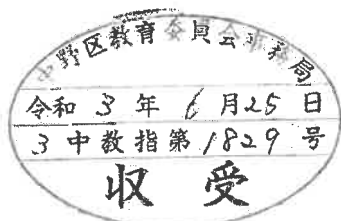 中野区教育委員会事務局
令和 3 年 6 月 25 日
3 中教指第 1829 号
収受